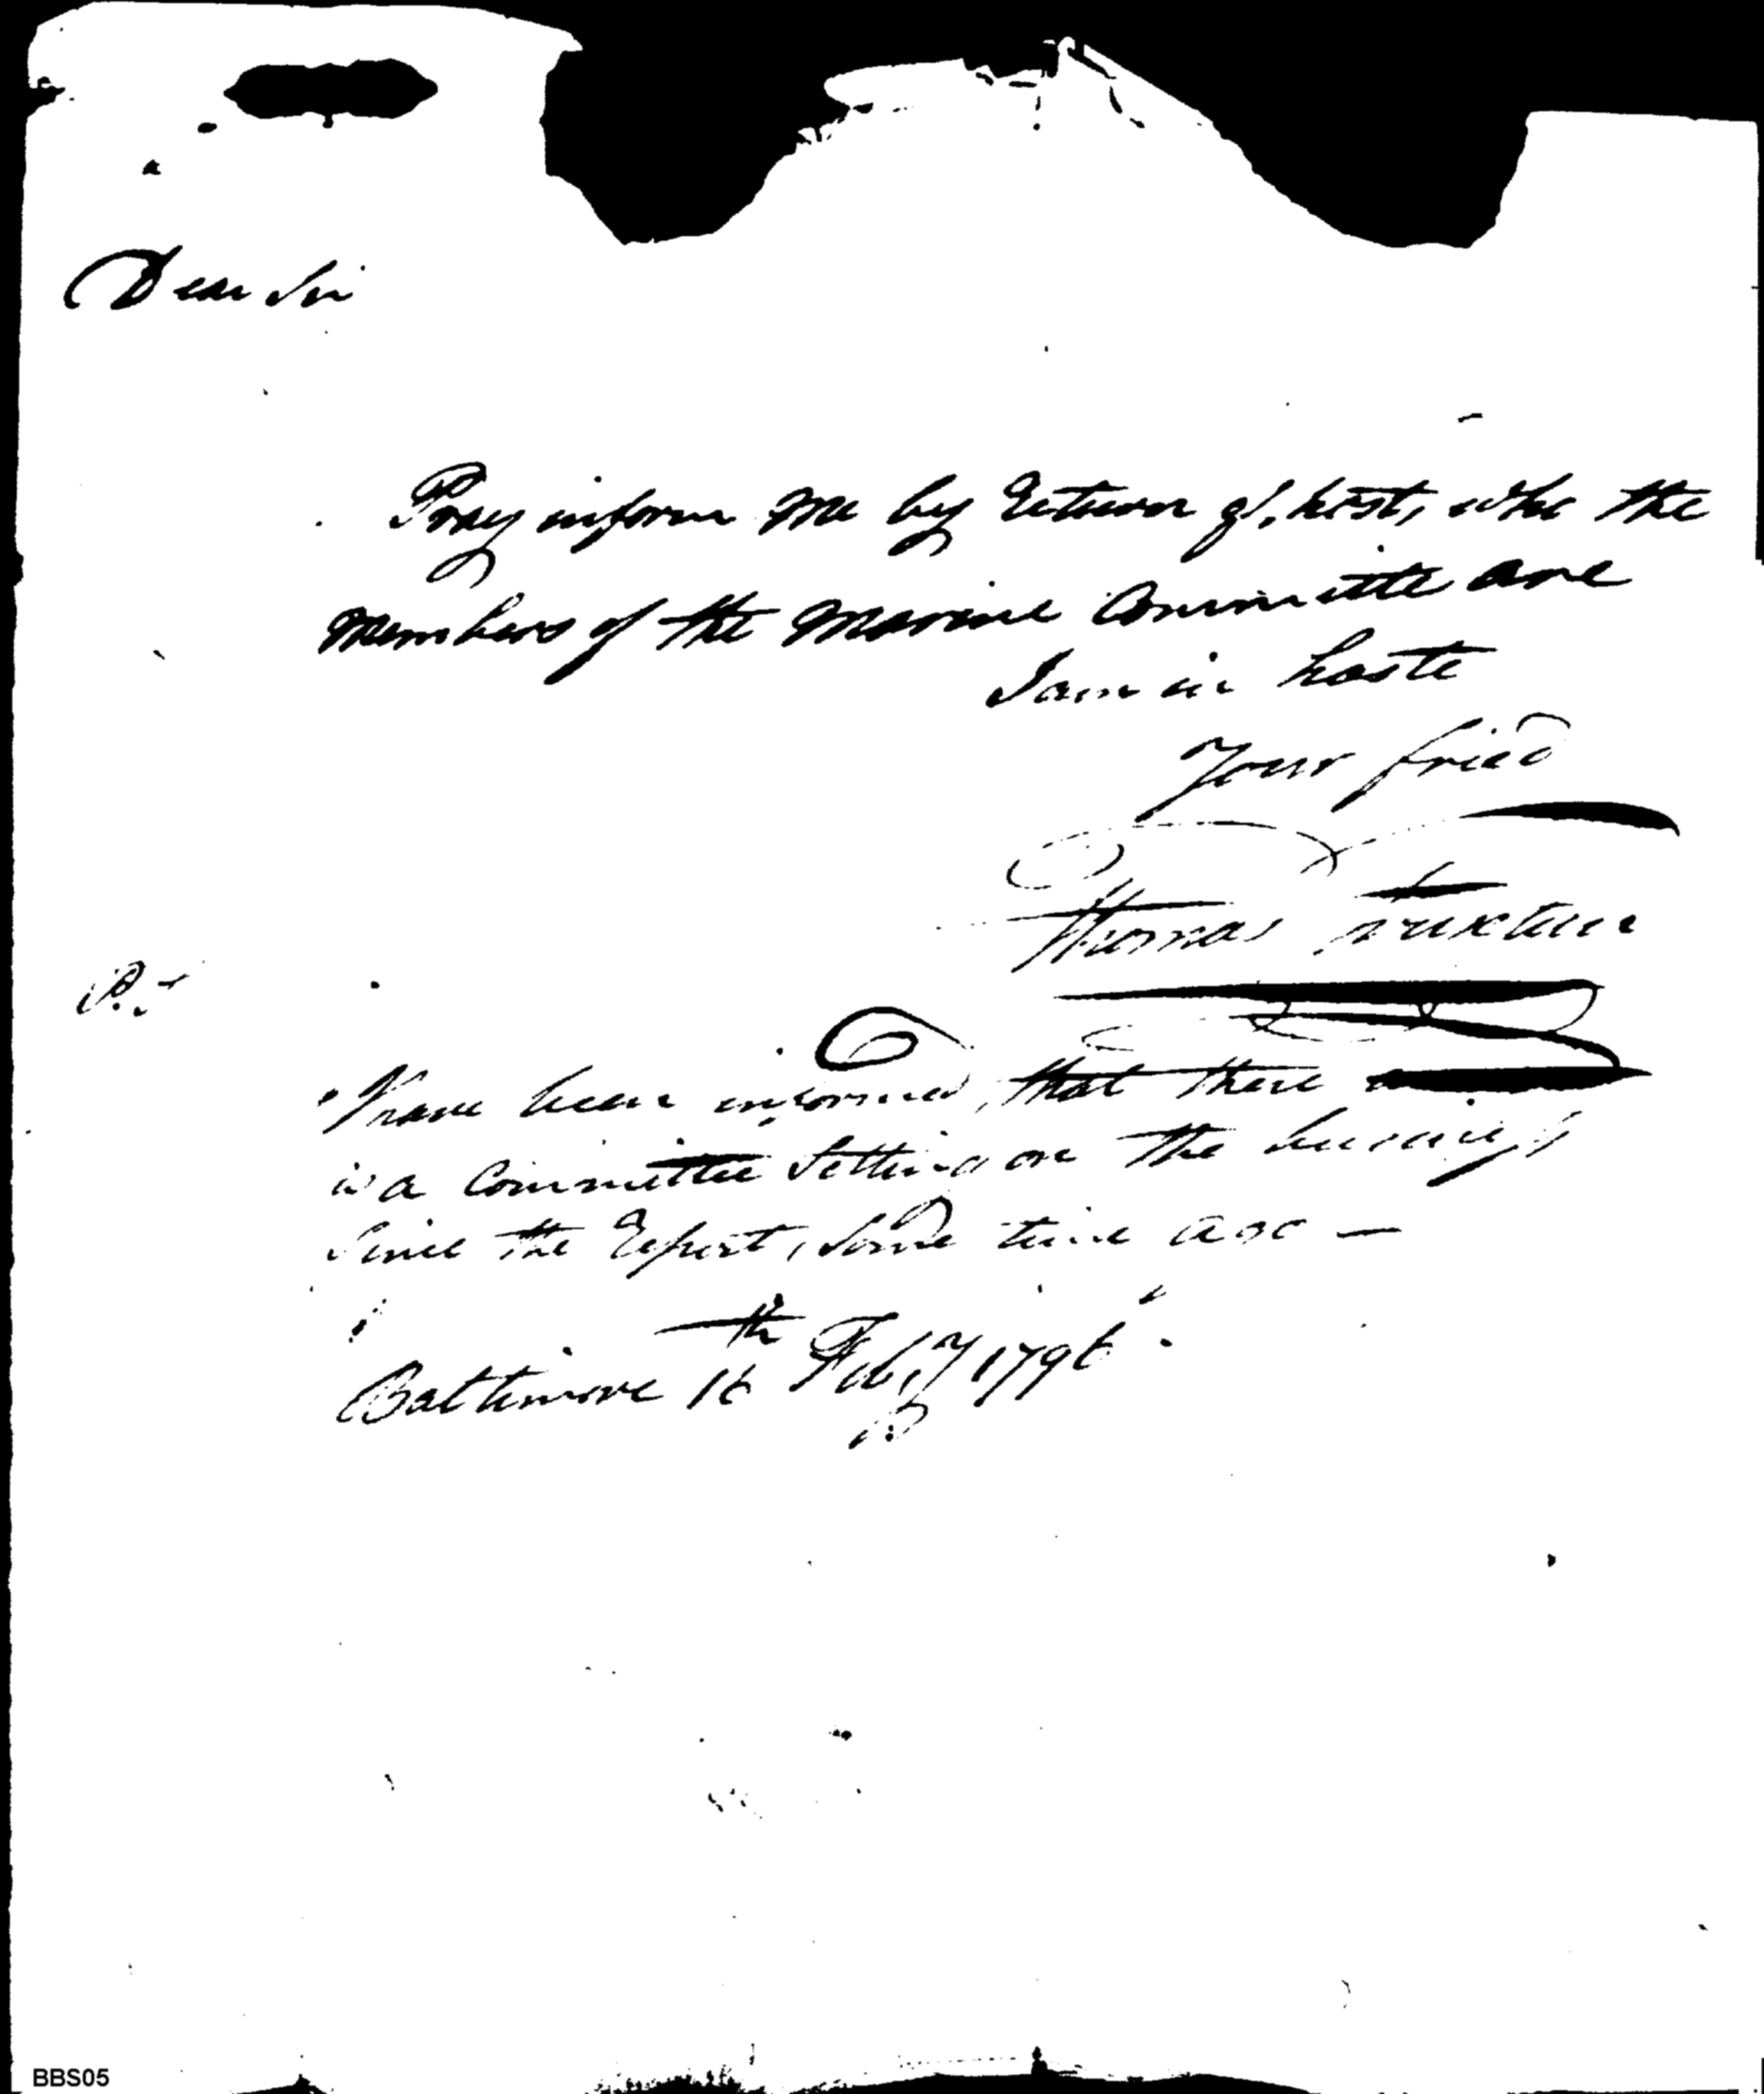 Dear Sir
Pray inform me by Return of, post, who the
Members of the Marine Committe are
I am in haste
Your friend
Thomas Truxtun
P.S
I have been informed, that there
is a Committee Setting on the business
Since the Report, some time ago —
Baltimore 16th Feby 1796
BBS05